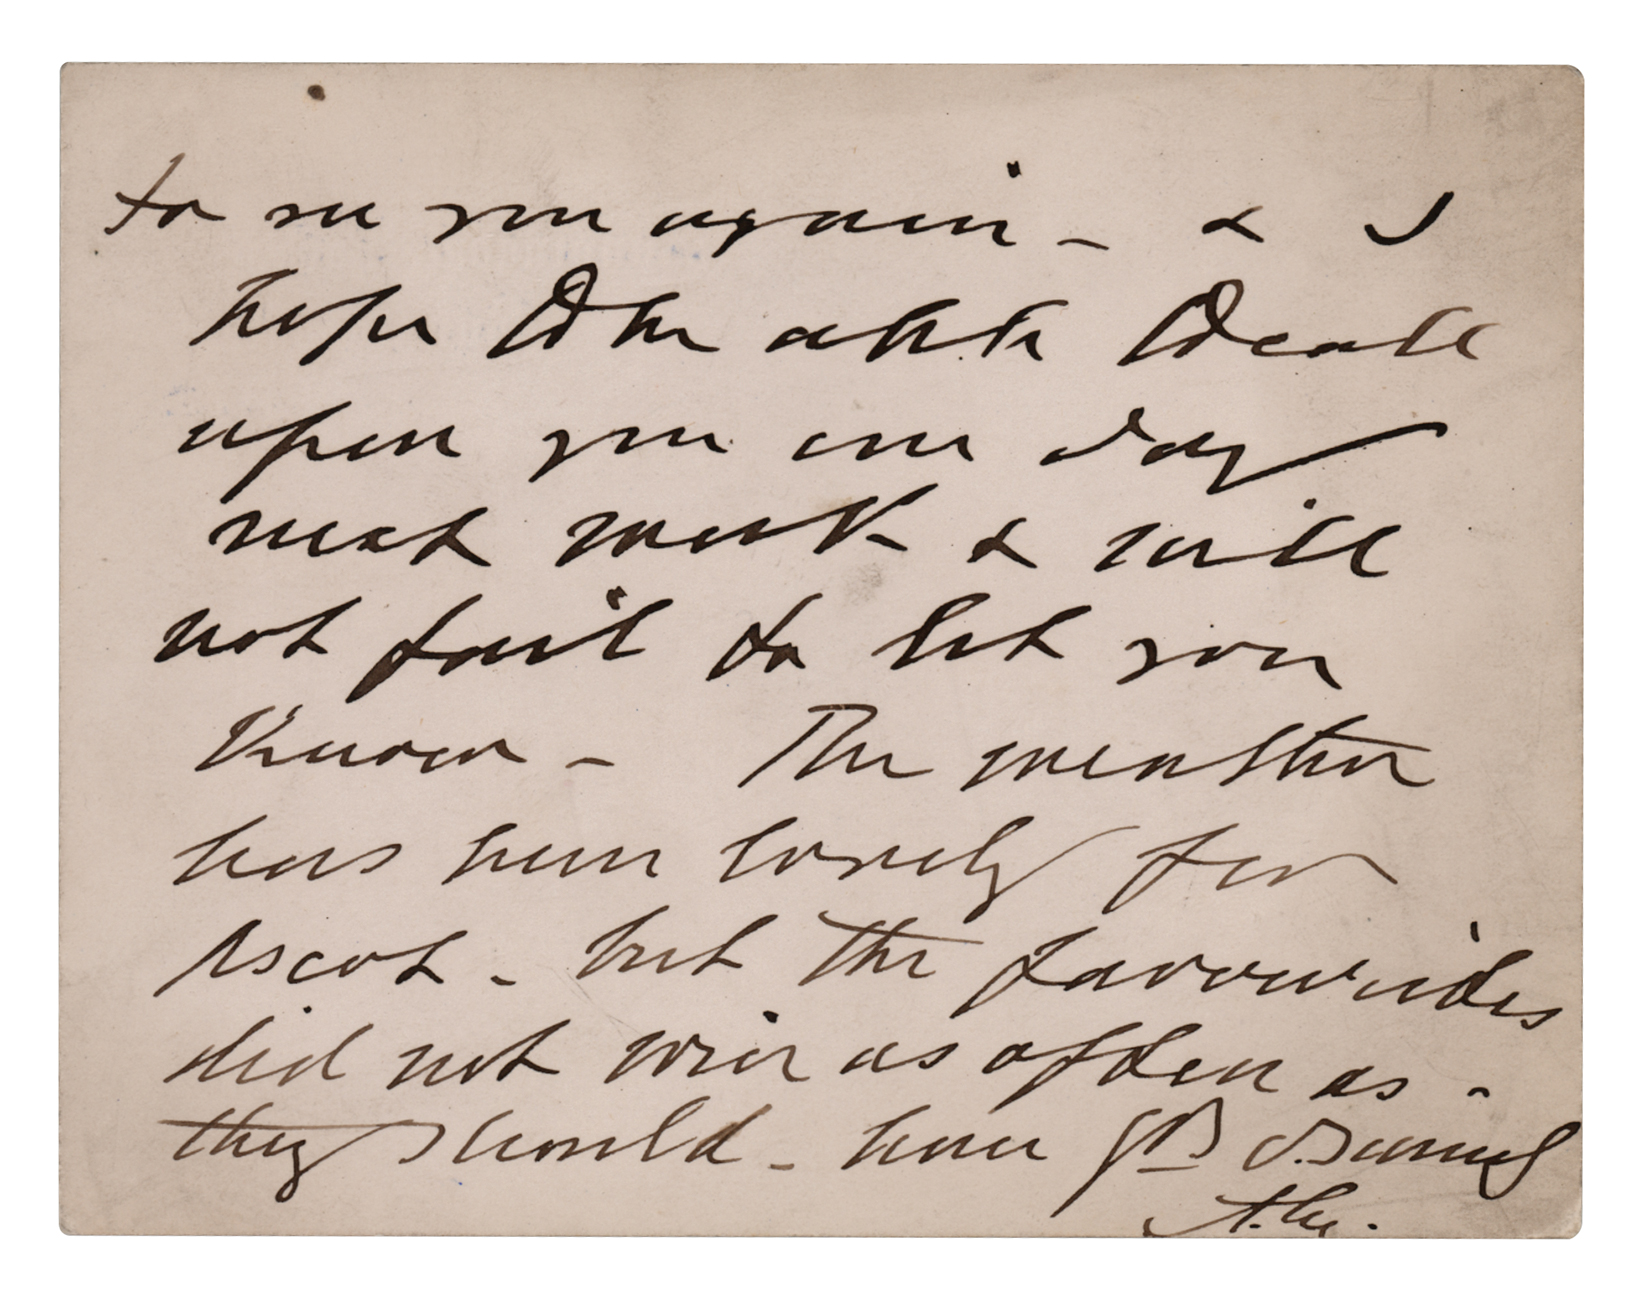 to see you again - & I
hope to be able to call
upon you one day
next week & will
not fail to let you
know - The weather
has been lovely for
Ascot - but the favourites
did not win as often as -
they should -